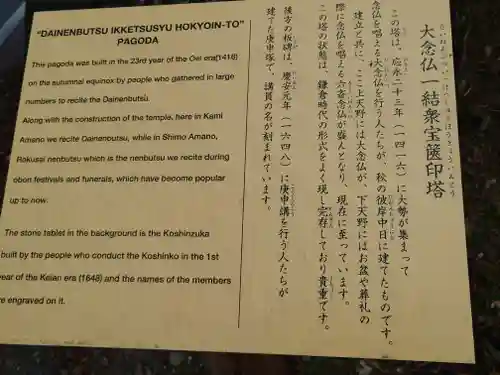 "DAINENBUTSU IKKETSUSYU HOKYOIN-TO"
PAGODA
This pagoda was built in the 23rd year of the Oei era(1416)
on the autumnal equinox by people who gathered in large
numbers to recite the Dainenbutsu.
Along with the construction of the temple, here in Kami
Amano we recite Dainenbutsu, while in Shimo Amano,
Rokusai nenbutsu which is the nenbutsu we recite during
obon festivals and funerals, which have become popular
up to now.
The stone tablet in the background is the Koshinzuka
built by the people who conduct the Koshinko in the 1st
year of the Keian era (1648) and the names of the members
are engraved on it.
大念仏一結衆宝篋印塔
この塔は、応永二十三年（一四一六）に大勢が集まって
念仏を唱える大念仏を行う人たちが、秋の彼岸中日に建てたものです。
建立と共に、ここ上天野には大念仏が、下天野にはお盆や葬礼の
際に念仏を唱える六斎念仏が盛んとなり、現在に至っています。
この塔の状態は、鎌倉時代の形式をよく現し完存しており貴重です。
後方の板碑は、慶安元年（一六四八）に庚申講を行う人たちが
建てた庚申塚で、講員の名が刻まれています。